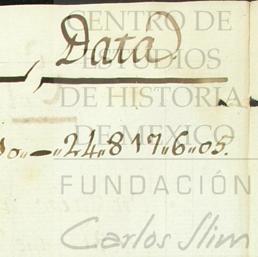 Data
CENTRO DE
ESTUDIOS
DE HISTORIA
DE MÉXICO
24,,817,,6,,05.
FUNDACIÓN
Carlos Slim